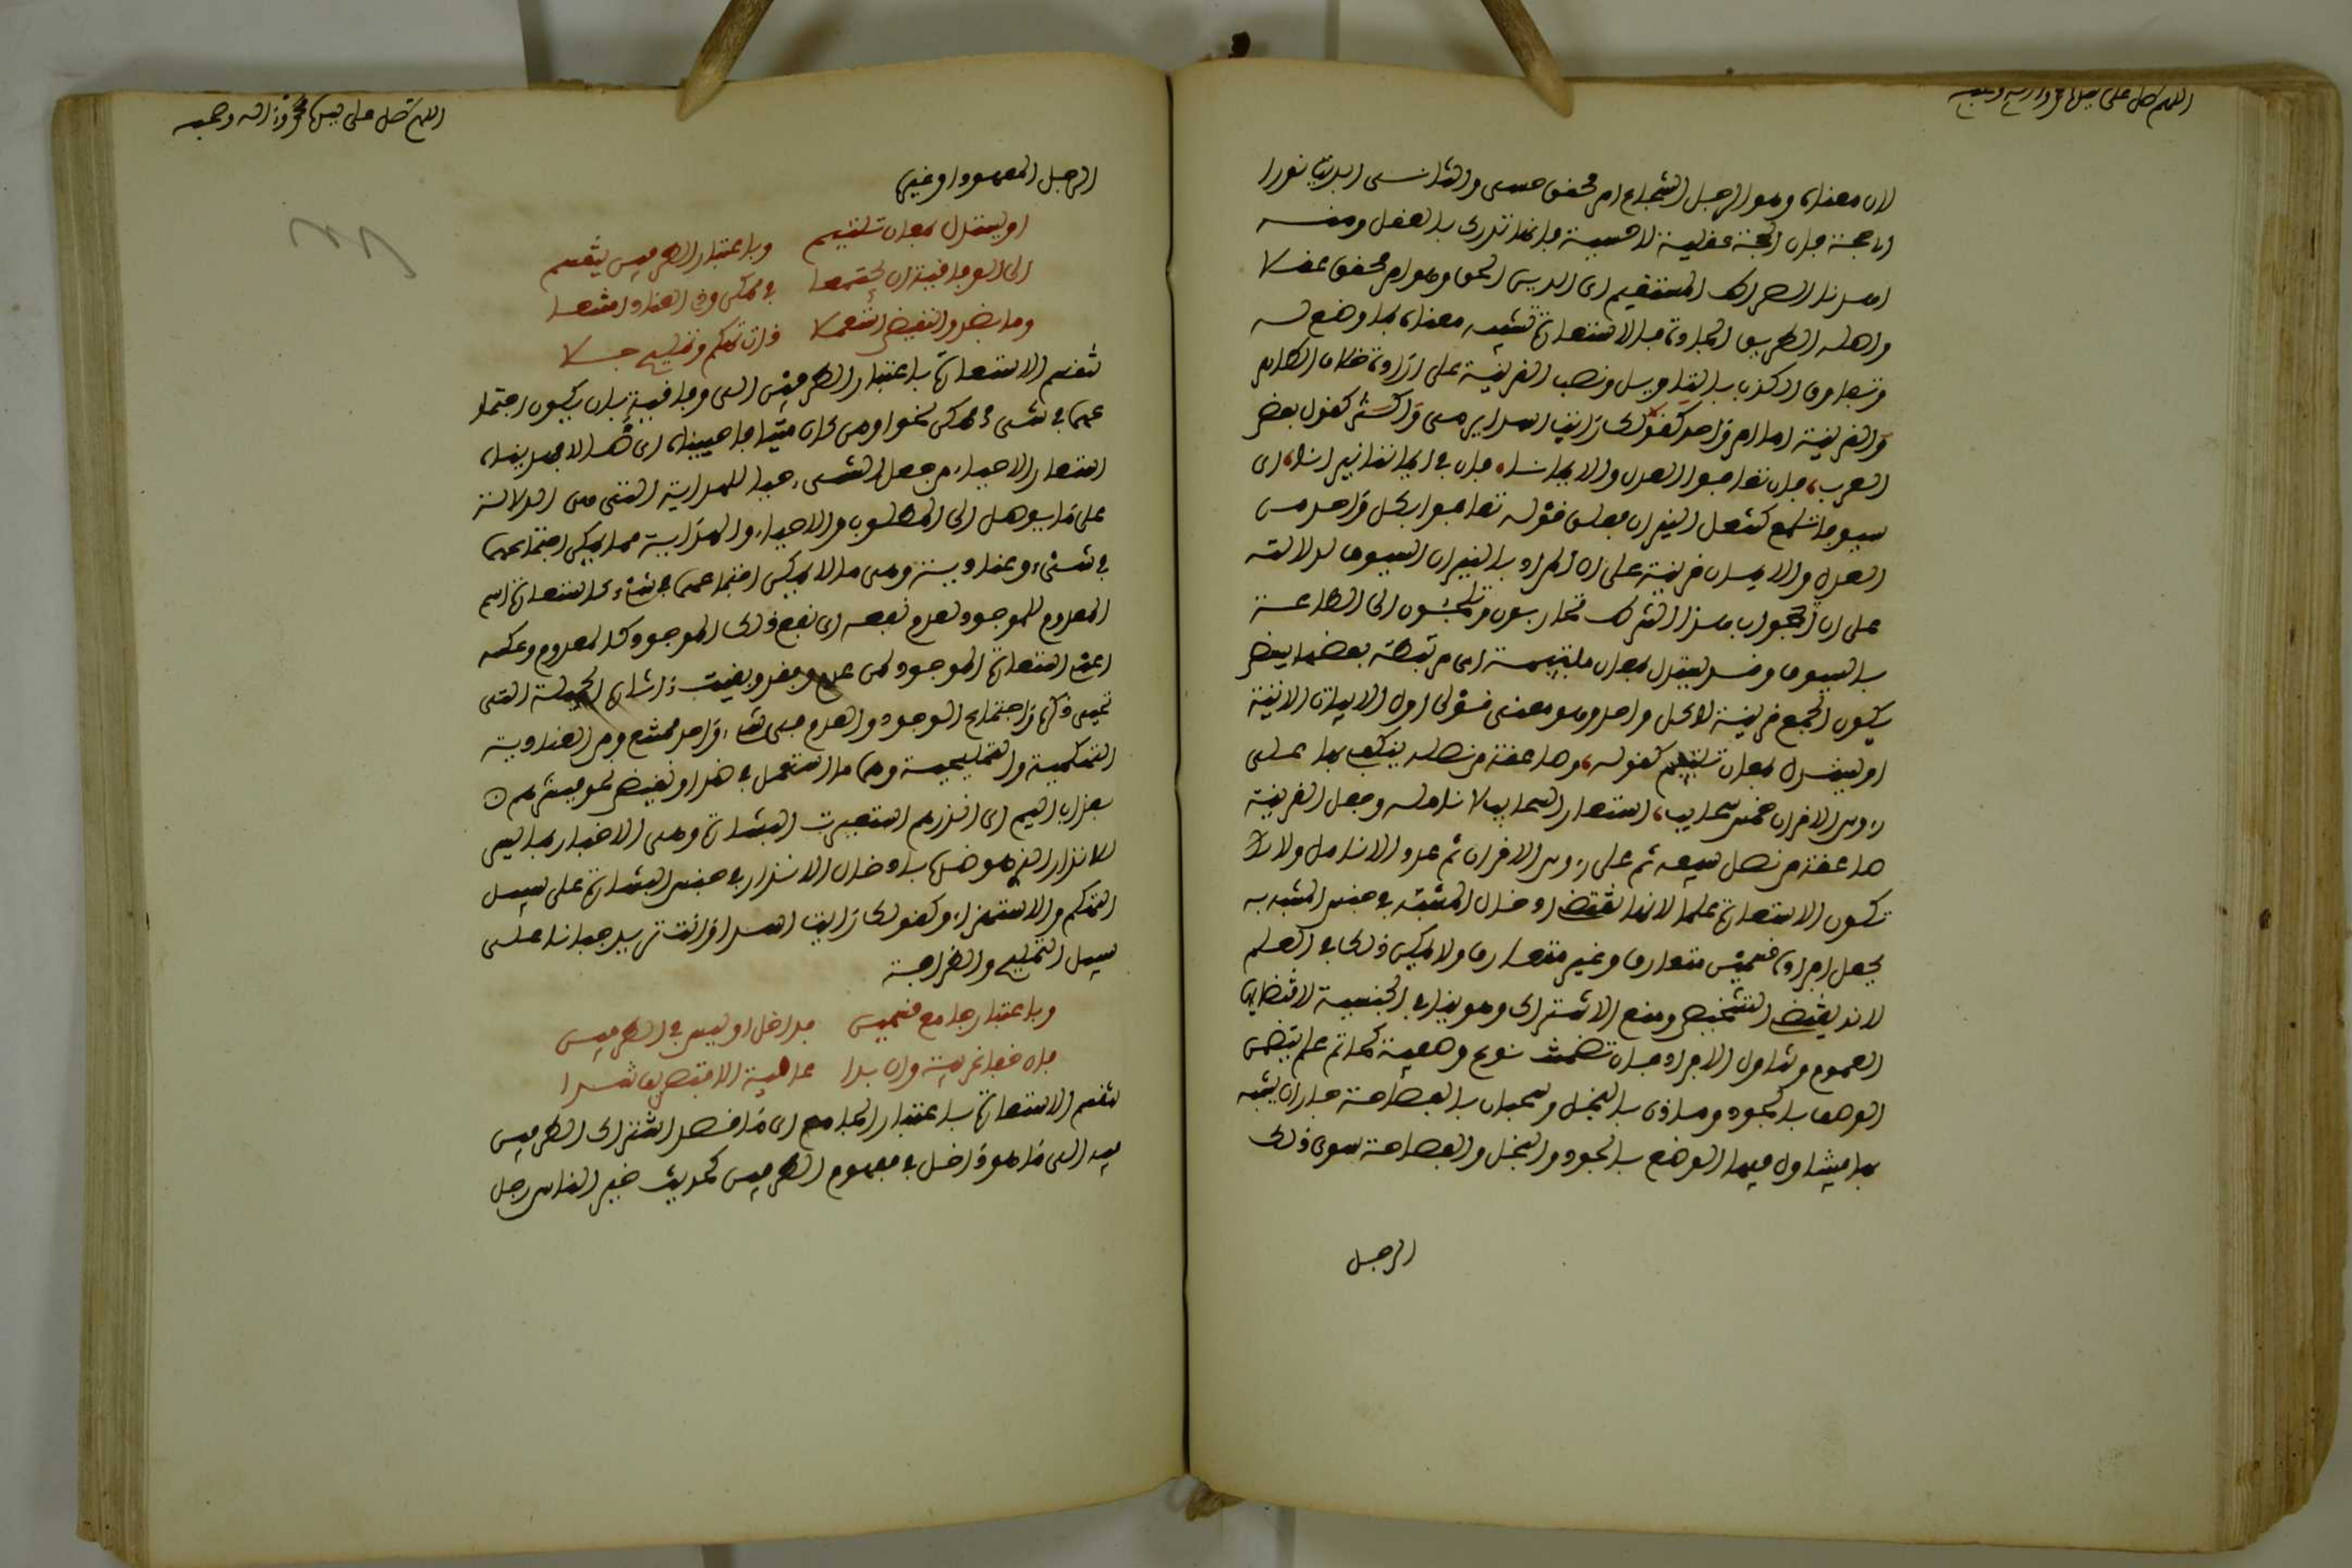 اللهم صل على سيدنا محمد وآله وصحبه
لان معناه وهو الرجل الشجاع امر محقق حسي والثاني ابديت نورا
اي حجة فان الحجة عقلية لا حسية فانها تدرك بالعقل ومنه
اهدنا الصراط المستقيم اي الدين الحق وهو امر محقق عقلا
واصله الطريق الجادة فالاستعارة تشبيه معناه بما وضع له
وتفارق الكذب بالتاويل ونصب القرينة على ارادة خلاف الظاهر
والقرينة اما امر واحد كقولك رايت اسدا يرمي واكثر كقول بعض
العرب، فان تعافوا العدل والايمانا، فان في ايماننا نيرانا، اي
سيوفا تلمع كشعل النيران فقوله تعافوا بكل واحد من
العدل والايمان قرينة على ان المراد بالنيران السيوف لدلالته
على ان الجواب هذا الشرط تحاربون وتلجئون الى الطاعة
بالسيوف وقد يقترن بمعان ملتيمة اي مرتبطة بعضها ببعض
يكون الجميع قرينة لا كل واحد وهو معنى قولي اول الابيات الاتية
او يقترن بمعان تلتيم كقوله، وصاعقة من نصله ينكف بها على
ارؤس الاقران خمس سحايب، استعار السحايب لانامله وجعل القرينة
صاعقة من نصل سيفه ثم على ارؤس الاقران ثم عدد الانامل ولا
تكون الاستعارة علما لانها تقتضي ادخال المشبه في جنس المشبه به
بجعل افراده قسمين متعارف وغير متعارف ولا يمكن ذلك في العلم
لانه يقتضي التشخيص ومنع الاشتراك وهو ينافي الجنسية لاقتضايها
العموم وتناول الافراد فان تضمنت نوع وصفية كحاتم علم يتضمن
الوصف بالجود ومادر بالبخل وسحبان بالفصاحة جاز ان يشبه
بها ميتاول فيها الوضع بالجود والبخل والفصاحة سوى ذلك
الرجل
اللهم صل على سيدنا محمد وآله وصحبه
الرجل المعهود او غيره
او يقترن بمعان تلتيم وباعتبار الطرفين ينقسم
الى الوفاقية ان يجتمعا في ممكن وذا العناد امتنعا
وما بضد والنقيض استعملا فذات تهكم وتمليح جلا
تنقسم الاستعارة باعتبار الطرفين الى وفاقية بان يكون اجتما
عهما في شيء ممكن نحو اومن كان ميتا فاحييناه اي ضالا فهديناه
استعار الاحياء من جعل الشيء حيا للهداية التي هي الدلالة
على ما يوصل الى المطلوب والاحياء والهداية مما يمكن اجتماعهما
في شيء وعنادية وهي ما لا يمكن اجتماعهما في شيء كاستعارة اسم
المعدوم للموجود لعدم نفعه اي نفع ذلك الموجود كالمعدوم وعكسه
اعني استعارة الموجود لمن عدم وفقد وبقيت اثاره الجميلة التي
تحيي ذكره واجتماع الوجود والعدم في شيء واحد ممتنع ومن العنادية
التهكمية والتمليحية وهما ما استعمل في ضد او نقيض نحو فبشرهم
بعذاب اليم اي انذرهم استعيرت البشارة وهي الاخبار بما يسر
للانذار الذي هو ضدها بادخال الانذار في جنس البشارة على سبيل
التهكم والاستهزاء وكقولك رايت اسدا وانت تريد جبانا على
سبيل التمليح والظرافة
وباعتبار جامع قسمين فداخل او ليس في الطرفين
فان خفا غريبة وان بدا عامية الا بتصريف شدا
تنقسم الاستعارة باعتبار الجامع اي ما قصد اشتراك الطرفين
فيه الى ما هو داخل في مفهوم الطرفين كحديث خير الناس رجل